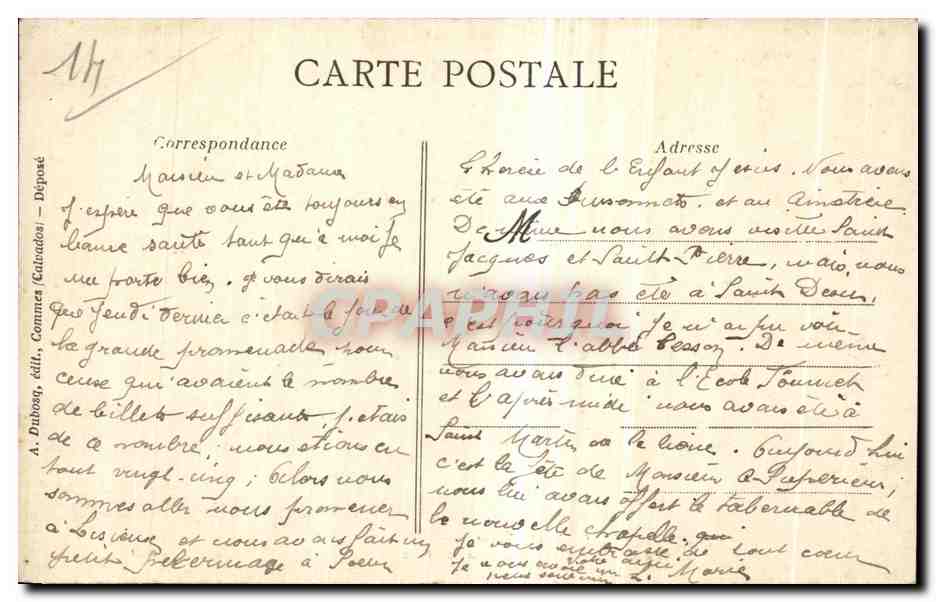 14
CARTE POSTALE
Correspondance
Monsieur et Madame
J'espère que vous êtes toujours en
bonne santé tant qu'à moi je
me porte bien. Je vous dirais
que Jeudi dernier c'était le jour de
la grande promenade pour
ceux qui avaient le nombre
de billets suffisants, j'etais
de ce nombre; nous etions en
tout vingt-cinq; Alors nous
sommes allés nous promener
à Lisieux et nous avons fait un
petit pelerinage à Soeur
Adresse
Thérèse de l'Enfant Jésus. Nous avons
été aux Buissonnets et au Cimetière.
De Même nous avons visité Saint
Jacques et Saint Pierre, mais nous
n'avons pas été à Saint Désir,
c'est pourquoi je n'ai pu voir
Monsieur l'abbé Besson. De même
nous avons diné à l'Ecole
et l'après midi nous avons été à
Saint Martin de la lieue. Aujourd'hui
c'est la fête de Monsieur le Supérieur;
nous lui avons offert le tabernable de
la nouvelle chapelle.
Je vous embrasse de tout coeur
votre ami
Je vous
A. Dubosq, édit., Commes (Calvados) — Déposé
CPAPHIL